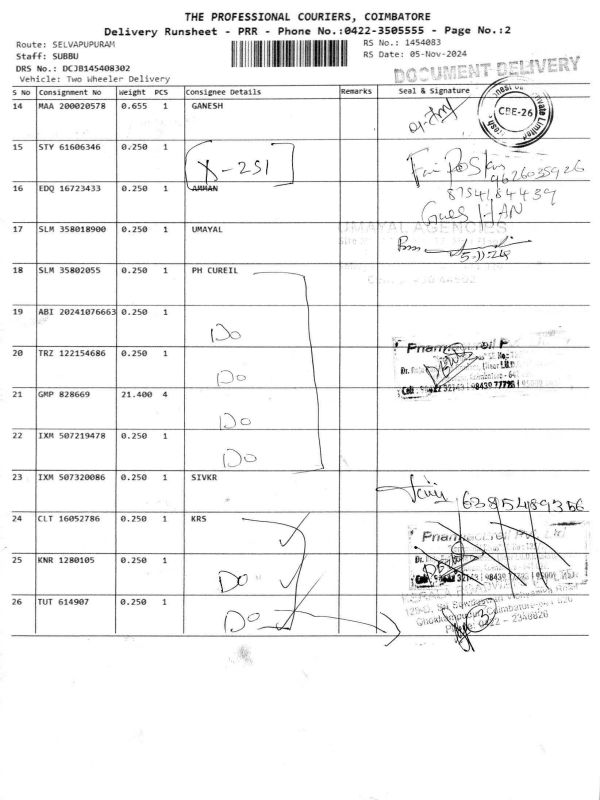 THE PROFESSIONAL COURIERS, COIMBATORE
Delivery Runsheet - PRR - Phone No.:0422-3505555 - Page No.:2
Route: SELVAPUPURAM
RS No.: 1454083
Staff: SUBBU
RS Date: 05-Nov-2024
DRS No.: DCJB145408302
DOCUMENT DELIVERY
Vehicle: Two Wheeler Delivery
S No Consignment No Weight PCS Consignee Details Remarks Seal & Signature
14 MAA 200020578 0.655 1 GANESH
CBE-26
Private Limited
15 STY 61606346 0.250 1
X-251
9626035926
16 EDQ 16723433 0.250 1 AMMAN
8754184439
17 SLM 358018900 0.250 1 UMAYAL
UMAYAL AGENCIES
5.11.24
18 SLM 35802055 0.250 1 PH CUREIL
19 ABI 20241076663 0.250 1
Do
20 TRZ 122154686 0.250 1
Do
21 GMP 828669 21.400 4
Cell : 98422 32143 | 98439 77726
Do
22 IXM 507219478 0.250 1
Do
23 IXM 507320086 0.250 1 SIVKR
6385489366
24 CLT 16052786 0.250 1 KRS
25 KNR 1280105 0.250 1
Do
26 TUT 614907 0.250 1
Do